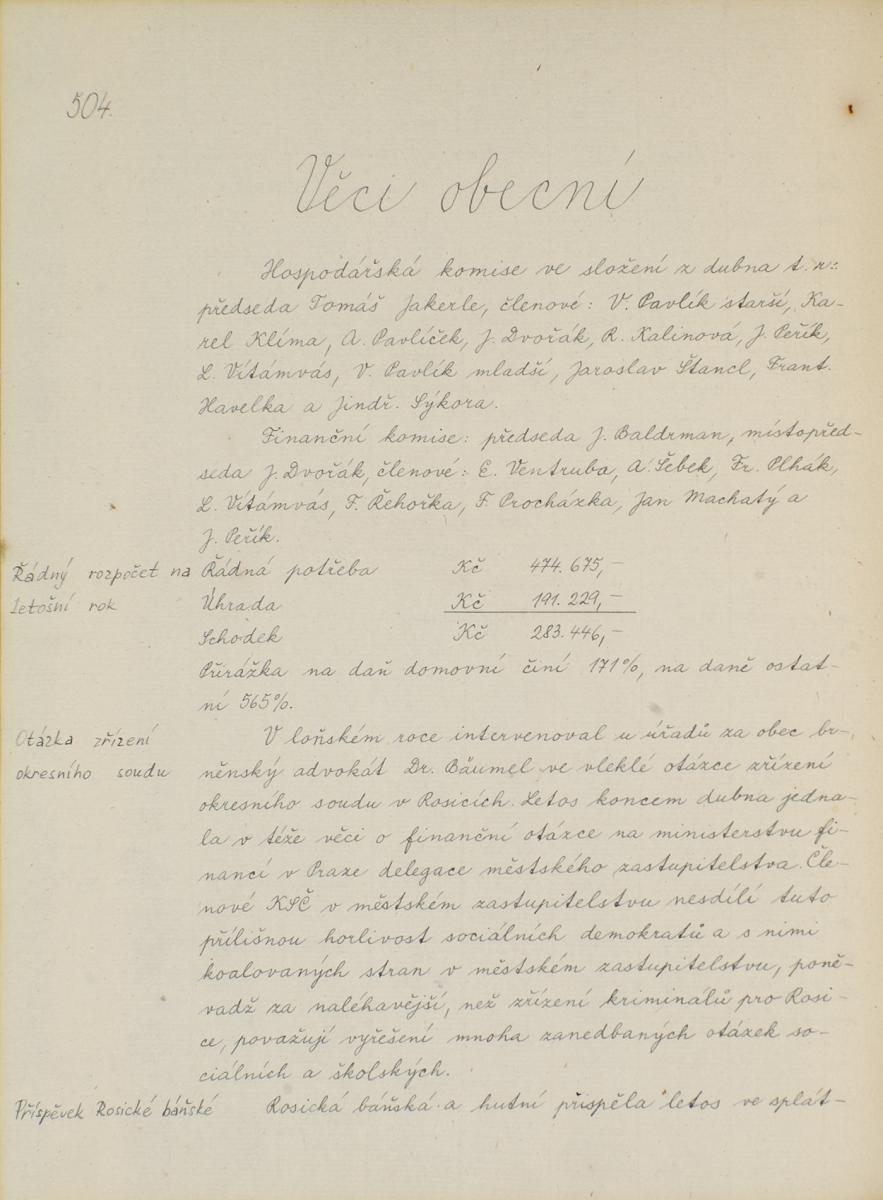 504.
Věci obecní
Hospodářská komise ve složení z dubna t. r.:
předseda Tomáš Jakerle, členové: V. Pavlík starší, Ka-
rel Klíma, A. Pavlíček, J. Dvořák, R. Kalinová, J. Peřík,
L. Vítámvás, V. Pavlík mladší, Jaroslav Štancl, Frant.
Havelka a Jindř. Sýkora.
Finanční komise: předseda J. Baldrman, místopřed-
seda J. Dvořák, členové: E. Ventruba, A. Šebek, Fr. Plhák,
L. Vítámvás, F. Řehořka, F. Procházka, Jan Machatý a
J. Peřík.
Řádný rozpočet na Řádná potřeba Kč 474.675,—
letošní rok Úhrada Kč 191.229,—
Schodek Kč 283.446,—
Přirážka na daň domovní činí 171%, na daně ostat-
ní 565%.
Otázka zřízení V loňském roce intervenoval u úřadů za obec br-
okresního soudu něnský advokát Dr. Bäumel ve vleklé otázce zřízení
okresního soudu v Rosicích. Letos koncem dubna jedna-
la v téže věci o finanční otázce na ministerstvu fi-
nancí v Praze delegace městského zastupitelstva. Čle-
nové KSČ v městském zastupitelstvu nesdílí tuto
přílišnou horlivost sociálních demokratů a s nimi
koalovaných stran v městském zastupitelstvu, poně-
vadž za naléhavější, než zřízení kriminálů pro Rosi-
ce, považují vyřešení mnoha zanedbaných otázek so-
ciálních a školských.
Příspěvek Rosické báňské Rosická báňská a hutní přispěla letos ve splát-